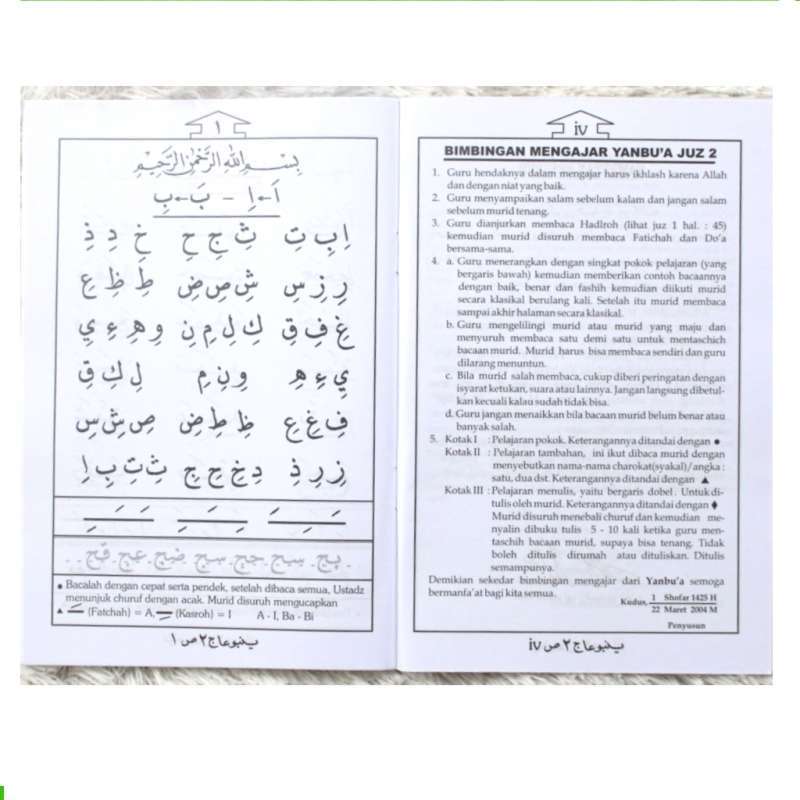 iv
BIMBINGAN MENGAJAR YANBU'A JUZ 2
1. Guru hendaknya dalam mengajar harus ikhlash karena Allah
dan dengan niat yang baik.
2. Guru menyampaikan salam sebelum kalam dan jangan salam
sebelum murid tenang.
3. Guru dianjurkan membaca Hadlroh (lihat juz 1 hal. : 45)
kemudian murid disuruh membaca Fatichah dan Do'a
bersama-sama.
4. a. Guru menerangkan dengan singkat pokok pelajaran (yang
bergaris bawah) kemudian memberikan contoh bacaannya
dengan baik, benar dan fashih kemudian diikuti murid
secara klasikal berulang kali. Setelah itu murid membaca
sampai akhir halaman secara klasikal.
b. Guru mengelilingi murid atau murid yang maju dan
menyuruh membaca satu demi satu untuk mentaschich
bacaan murid. Murid harus bisa membaca sendiri dan guru
dilarang menuntun.
c. Bila murid salah membaca, cukup diberi peringatan dengan
isyarat ketukan, suara atau lainnya. Jangan langsung dibetul-
kan kecuali kalau sudah tidak bisa.
d. Guru jangan menaikkan bila bacaan murid belum benar atau
banyak salah.
5. Kotak I : Pelajaran pokok. Keterangannya ditandai dengan ●
Kotak II : Pelajaran tambahan, ini ikut dibaca murid dengan
menyebutkan nama-nama charokat(syakal)/angka :
satu, dua dst. Keterangannya ditandai dengan ▲
Kotak III : Pelajaran menulis, yaitu bergaris dobel. Untuk di-
tulis oleh murid. Keterangannya ditandai dengan ♦
Murid disuruh menebali churuf dan kemudian me-
nyalin dibuku tulis 5 - 10 kali ketika guru men-
taschih bacaan murid, supaya bisa tenang. Tidak
boleh ditulis dirumah atau dituliskan. Ditulis
semampunya.
Demikian sekedar bimbingan mengajar dari Yanbu'a semoga
bermanfa'at bagi kita semua.
Kudus, 1 Shofar 1425 H
22 Maret 2004 M
Penyusun
ينبوعا ج ٢ ص iv
١
بِسْمِ اللهِ الرَّحْمٰنِ الرَّحِيْمِ
اَ←اِ - بَ←بِ
اِ بِ تِ ثِ جِ حِ خِ دِ ذِ
رِ زِ سِ شِ صِ ضِ طِ ظِ عِ
غِ فِ قِ كِ لِ مِ نِ وِ هِ ءِ يِ
يِ ءِ هِ وِ نِ مِ لِ كِ قِ
فِ غِ عِ ظِ طِ ضِ صِ شِ سِ
زِ رِ ذِ دِ خِ حِ جِ ثِ تِ بِ اِ
ـَـ ـِـ ـَـ ـِـ ـَـ ـِـ
بج. سج. حج. سج. ضج. عج. قج.
● Bacalah dengan cepat serta pendek, setelah dibaca semua, Ustadz
menunjuk churuf dengan acak. Murid disuruh mengucapkan
▲ ـَـ (Fatchah) = A, ـِـ (Kasroh) = I A - I, Ba - Bi
ينبوعا ج ٢ ص ١